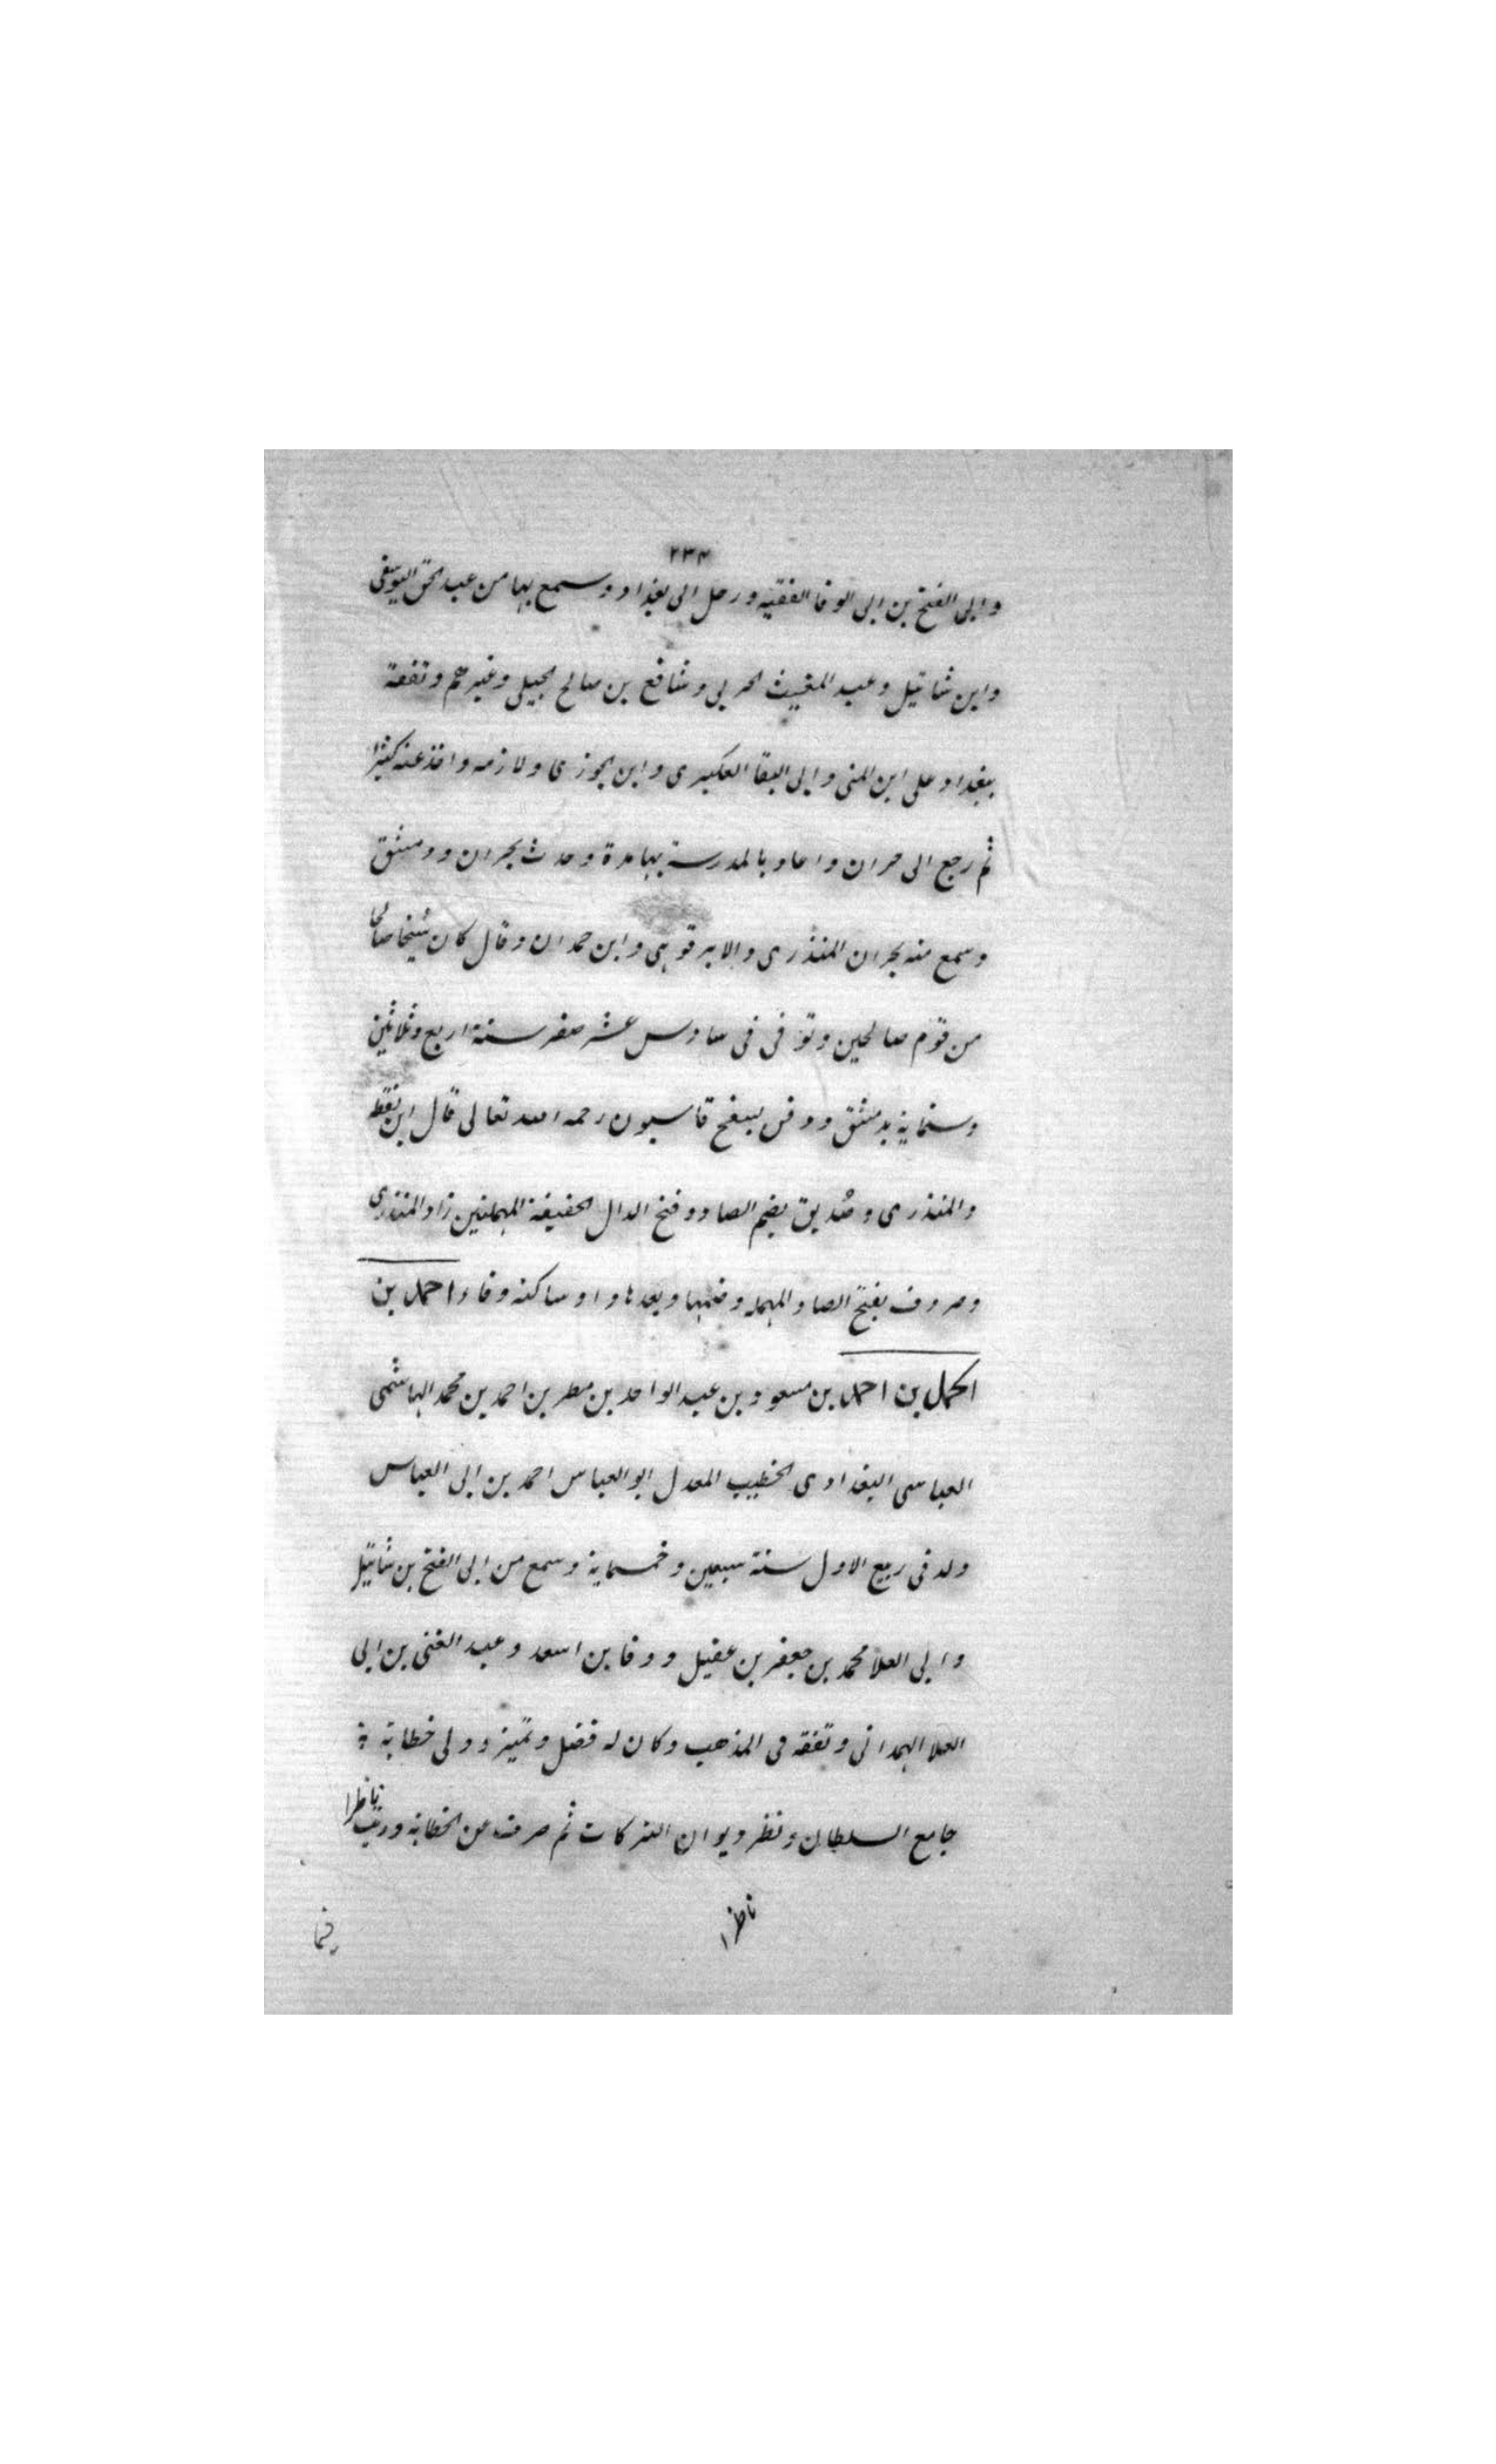 ٢٣٤
وابى الفتح بن ابى الوفا الفقيه ورحل الى بغداد وسمع بها من عبد الحق اليوسفى
وابن شاتيل وعبد المغيث الحربى وشافع بن صالح الجيلى وغيرهم وتفقه
ببغداد على ابن المنى وابى البقا العكبرى وابن الجوزى ولازمه واخذ عنه كثيرا
ثم رجع الى حران واعاد بالمدرسة بها مدة وحدث بحران ودمشق
وسمع منه بحران المنذرى والابرقوهى وابن حمدان وقال كان شيخا صالحا
من قوم صالحين وتوفى فى سادس عشر صفر سنة اربع وثلاثين
وستماية بدمشق ودفن بسفح قاسيون رحمه الله تعالى قال ابن نقطه
والمنذرى وصُديق بضم الصاد وفتح الدال الخفيفة المهملتين زاد المنذرى
وصروف بفتح الصاد المهمله وضمها وبعدها واو ساكنه وفاء احمد بن
اكمل بن احمد بن مسعود بن عبد الواحد بن مطر بن احمد بن محمد الهاشمى
العباسى البغدادى الخطيب المعدل ابو العباس احمد بن ابى العباس
ولد فى ربيع الاول سنة سبعين وخمسماية وسمع من ابى الفتح بن شاتيل
وابى العلا محمد بن جعفر بن عقيل ووفا بن اسعد وعبد الغنى بن ابى
العلا الهمدانى وتفقه فى المذهب وكان له فضل وتميز وولى خطابة
جامع السلطان ونظر ديوان التركات ثم صرف عن الخطابة ورتب ناظرا
ناظرا